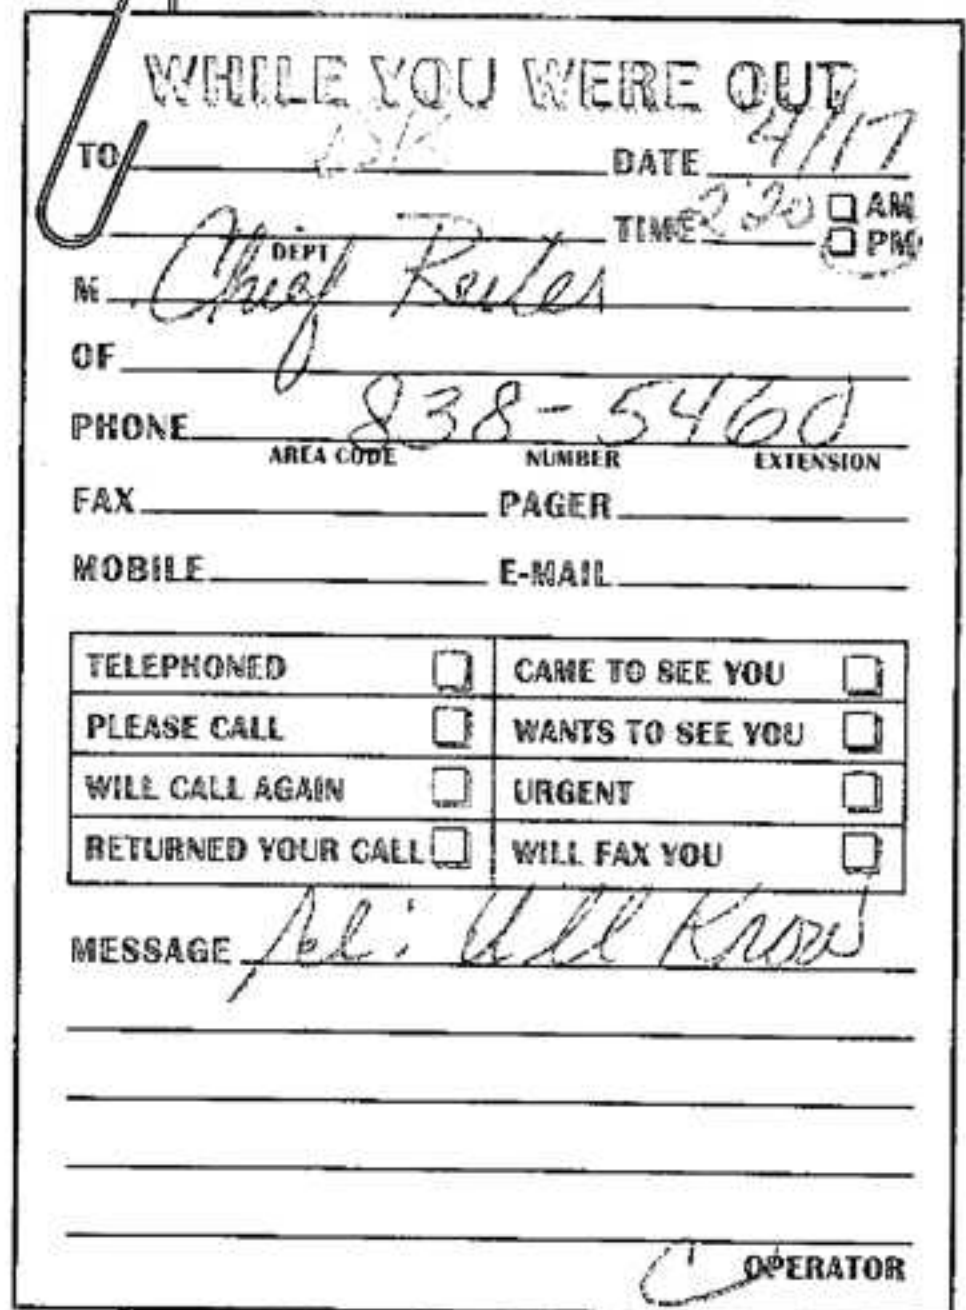 WHILE YOU WERE OUT
TO DATE 4/17
TIME 2:20 AM
DEPT PM
M Chief Reiter
OF
PHONE 838-5460
AREA CODE NUMBER EXTENSION
FAX PAGER
MOBILE E-MAIL
TELEPHONED CAME TO SEE YOU
PLEASE CALL WANTS TO SEE YOU
WILL CALL AGAIN URGENT
RETURNED YOUR CALL WILL FAX YOU
MESSAGE Know
OPERATOR